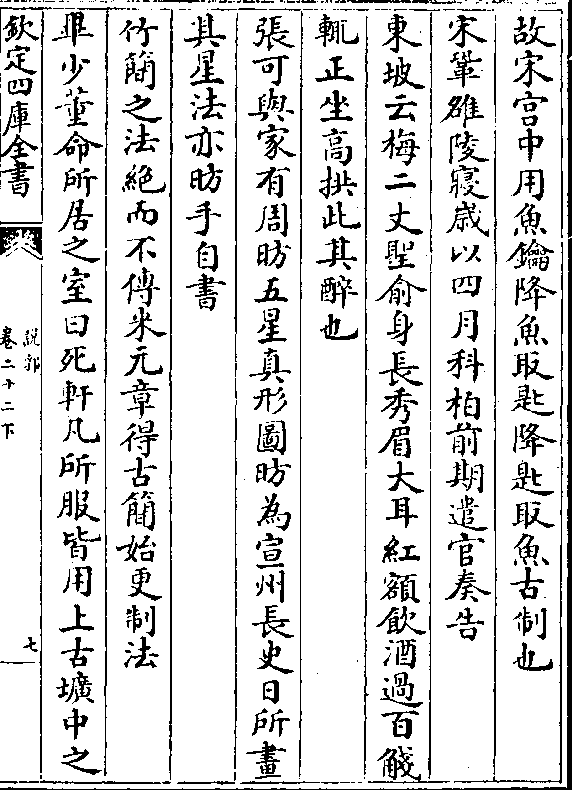 故宋宫中用魚鑰降魚取匙降匙取魚古制也
宋鞏雒陵寢歳以四月科柏前期遣官奏告
東坡云梅二丈聖俞身長秀眉大耳紅額飲酒過百觥
輒正坐高拱此其醉也
張可與家有周昉五星真形圖昉為宣州長史日所畫
其星法亦昉手自書
竹簡之法絶而不傳米元章得古簡始更制法
畢少董命所居之室曰死軒凡所服皆用上古壙中之
欽定四庫全書
說郛
卷二十二下
七